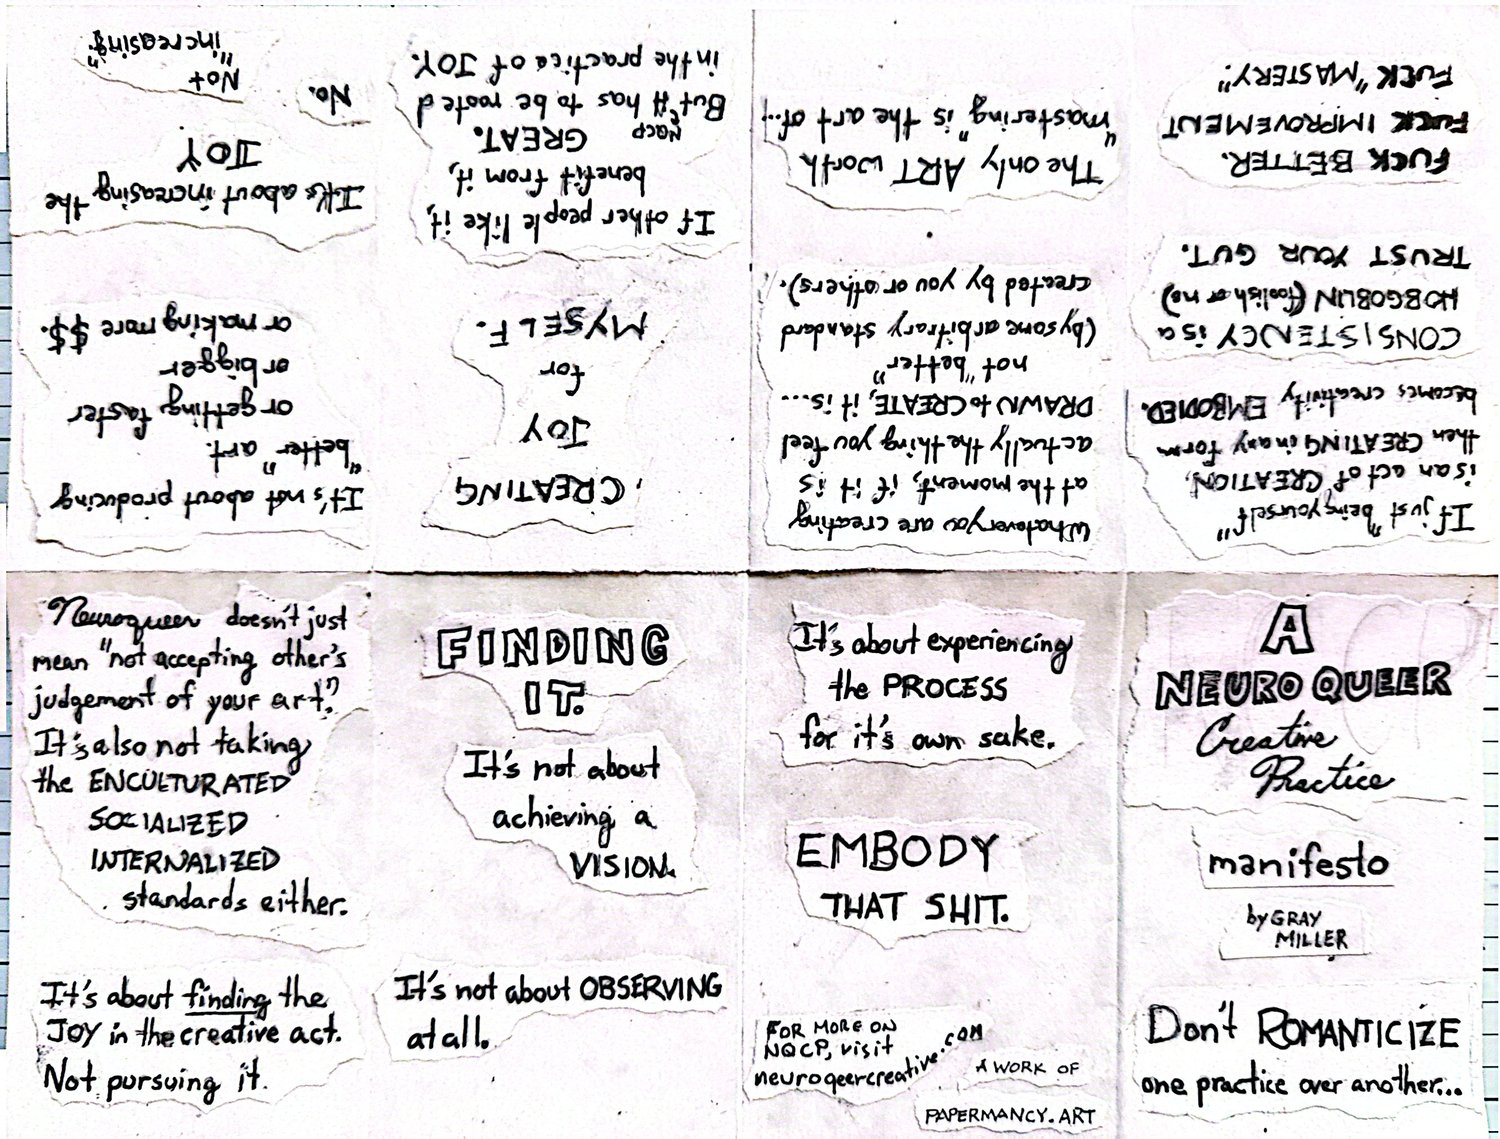 A
NEUROQUEER
Creative
Practice
manifesto
by GRAY
MILLER
Don't ROMANTICIZE
one practice over another...
If just "being yourself"
is an act of CREATION,
then CREATING in any form
becomes creativity EMBODIED.
CONSISTENCY is a
HOBGOBLIN (foolish or no)
TRUST YOUR GUT.
FUCK BETTER.
FUCK IMPROVEMENT
FUCK "MASTERY".
Whatever you are creating
at the moment, if it is
actually the thing you feel
DRAWN to CREATE, it is....
not "better"
(by some arbitrary standard
created by you or others).
The only ART worth
"mastering" is the art of...
CREATING
JOY
for
MYSELF.
If other people like it,
benefit from it,
GREAT.
NQCP
But it has to be rooted
in the practice of JOY.
It's not about producing
"better" art.
or getting faster
or bigger
or making more $$.
It's about increasing the
JOY
No.
Not
"increasing".
Neuroqueer doesn't just
mean "not accepting other's
judgement of your art."
It's also not taking
the ENCULTURATED
SOCIALIZED
INTERNALIZED
standards either.
It's about finding the
JOY in the creative act.
Not pursuing it.
FINDING
IT.
It's not about
achieving a
VISION.
It's not about OBSERVING
at all.
It's about experiencing
the PROCESS
for it's own sake.
EMBODY
THAT SHIT.
FOR MORE ON
NQCP, visit
neuroqeercreative.com
A WORK OF
PAPERMANCY.ART